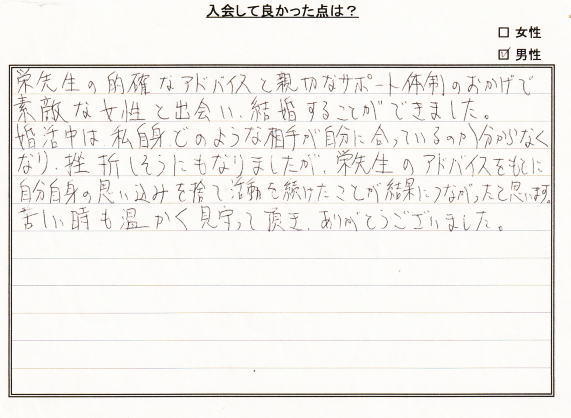 入会して良かった点は？
□ 女性
☑ 男性
栄先生の的確なアドバイスと親切なサポート体制のおかげで
素敵な女性と出会い、結婚することができました。
婚活中は、私自身どのような相手が自分に合っているのか分からなく
なり、挫折しそうにもなりましたが、栄先生のアドバイスをもとに
自分自身の思い込みを捨て活動を続けたことが結果につながったと思います。
苦しい時も温かく見守って頂き、ありがとうございました。